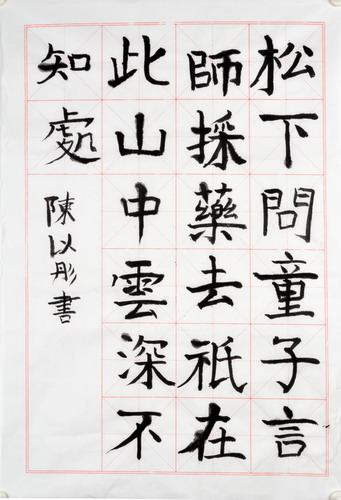 松下問童子言
師採藥去祇在
此山中雲深不
知處
陳以彤書